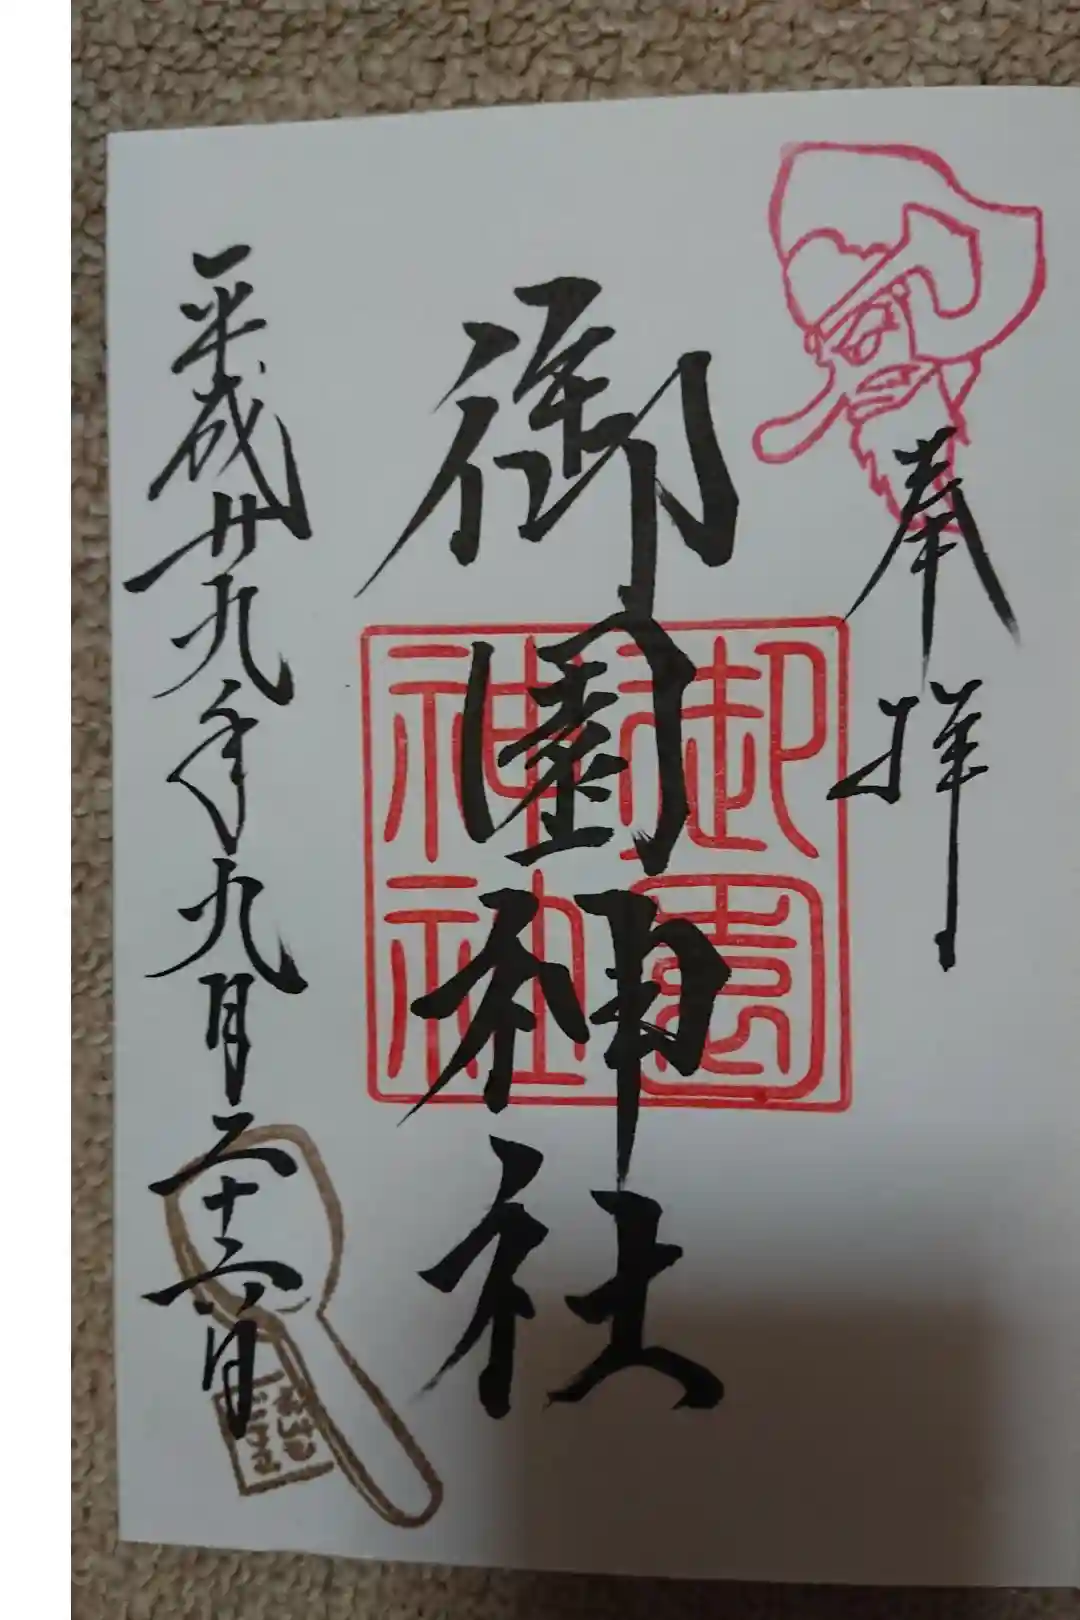 奉拝
御園神社
御園神社
平成廿九年九月二十六日